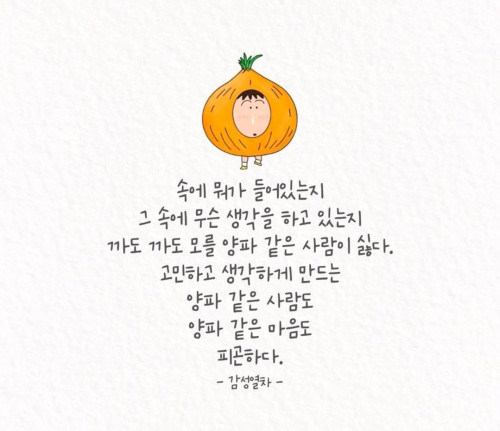 속에 뭐가 들어있는지
그 속에 무슨 생각을 하고 있는지
까도 까도 모를 양파 같은 사람이 싫다.
고민하고 생각하게 만드는
양파 같은 사람도
양파 같은 마음도
피곤하다.
- 감성열차 -